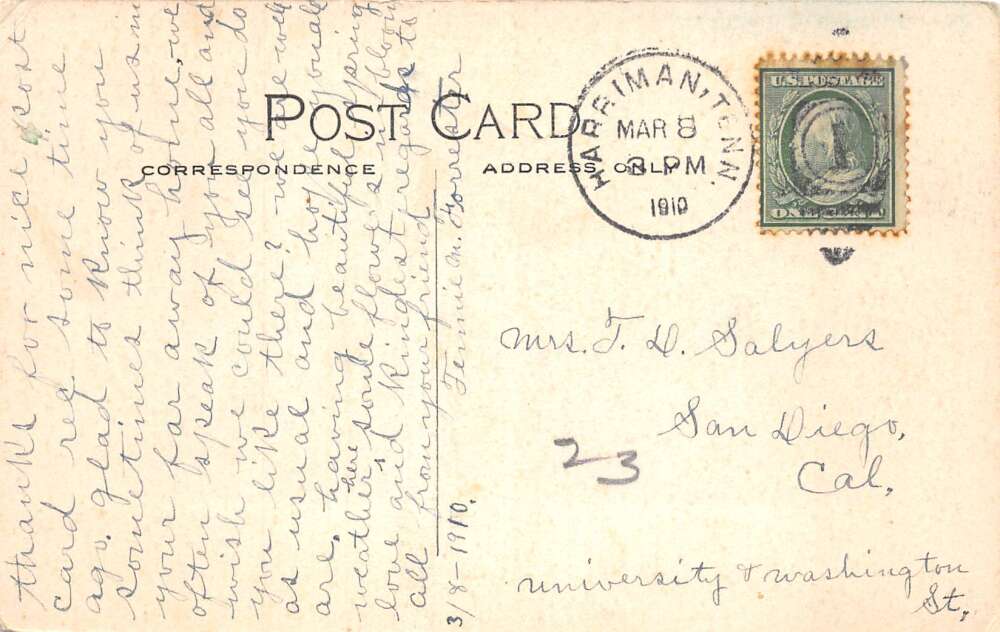 POST CARD
CORRESPONDENCE
ADDRESS ONLY
HARRIMAN, TENN.
MAR 8
3 PM
1910
U.S. POSTAGE
1
ONE CENT
Mrs. T. D. Salyers
San Diego,
Cal.
university & washington
St,
23
thanks for nice post
card rec some time
ago. glad to know you
sometimes think of us in
your far away home, we
often speak of you all and
wish we could see you do
you like there? we are well
as usual and hope you all
are, having beautiful spring
weather here some flower's in bloom
love and kindest regards to
all from your friend
Fennie M. Forrester
3/8-1910.